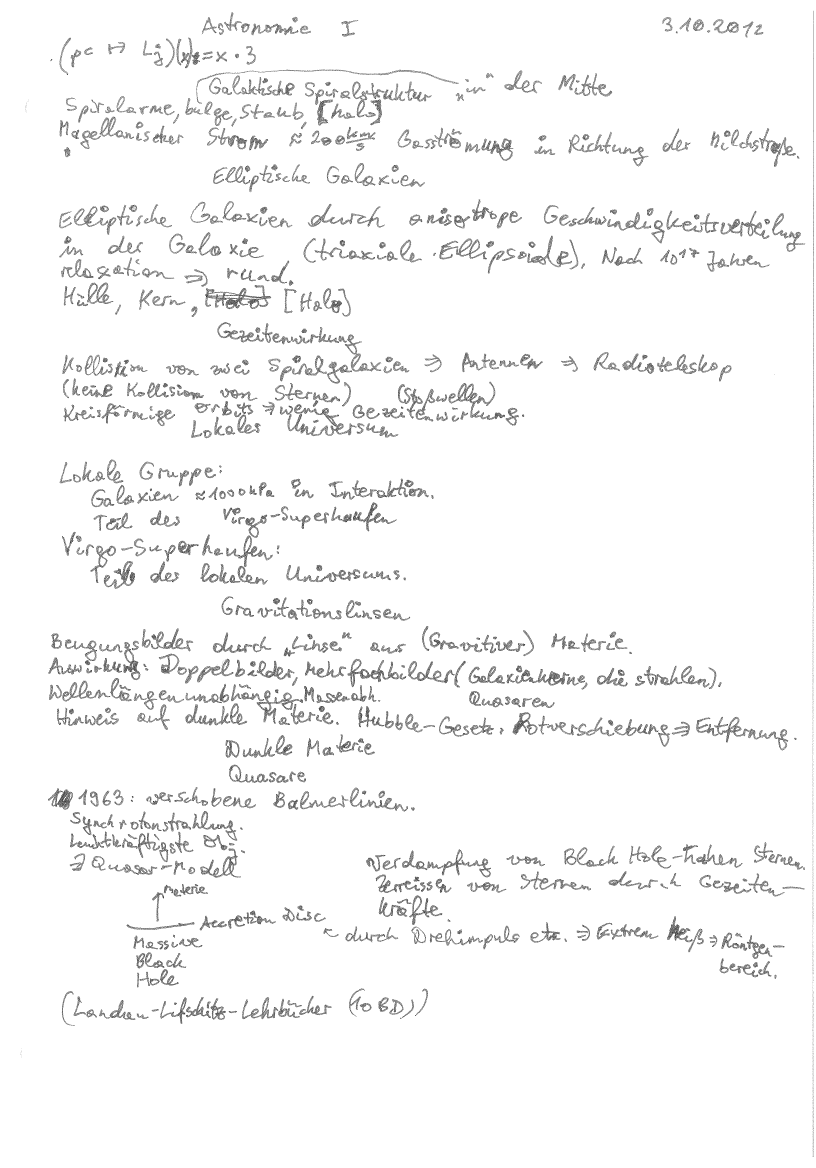 Astronomie I 3.10.2012
(pc ↦ Lj)(x) = x · 3
Galaktische Spiralstruktur „in" der Mitte
Spiralarme, bulge, Staub, [halo]
Magellanischer Strom ≈ 200 km/s Gasströmung in Richtung der Milchstraße.
Elliptische Galaxien
Elliptische Galaxien durch anisotrope Geschwindigkeitsverteilung
in der Galaxie (triaxiale Ellipsoide), Nach 10¹⁷ Jahren
relaxation ⇒ rund.
Hülle, Kern, [Halo]
Gezeitenwirkung
Kollision von zwei Spiralgalaxien ⇒ Antennen ⇒ Radioteleskop
(keine Kollision von Sternen) (Stoßwellen)
Kreisförmige orbits ⇒ wenig Gezeitenwirkung.
Lokales Universum
Lokale Gruppe:
Galaxien ≈ 1000 kPa in Interaktion.
Teil des Virgo-Superhaufen
Virgo-Superhaufen:
Teil des lokalen Universums.
Gravitationslinsen
Beugungsbilder durch „Linse" aus (Gravitiver) Materie.
Auswirkung: Doppelbilder, Mehrfachbilder (Galaxienkerne, die strahlen).
Wellenlängenunabhängig, Massenabh. Quasaren
Hinweis auf dunkle Materie. Hubble-Gesetz: Rotverschiebung ⇒ Entfernung.
Dunkle Materie
Quasare
1963: verschobene Balmerlinien.
Synchrotonstrahlung.
Leuchtkräftigste Obj.
⇒ Quasar-Modell
Verdampfung von Black Hole-nahen Sternen.
Zerreissen von Sternen durch Gezeiten-
kräfte.
Materie
Accretion Disc ↖ durch Drehimpuls etc. ⇒ Extrem heiß ⇒ Röntgen-
bereich.
Massive
Black
Hole
(Landau-Lifschitz-Lehrbücher (10 BD))